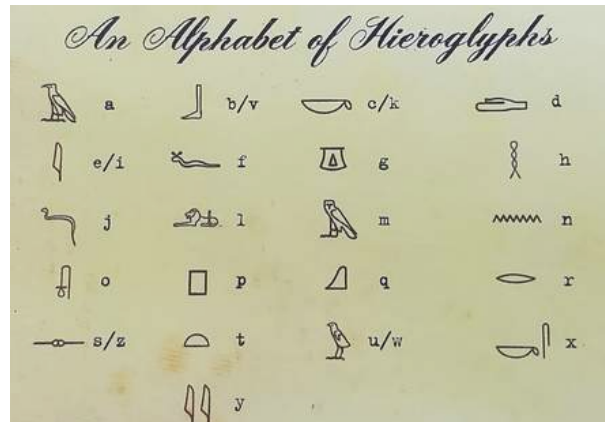 An Alphabet of Hieroglyphs
a b/v c/k d
e/i f g h
j l m n
o p q r
s/z t u/w x
y